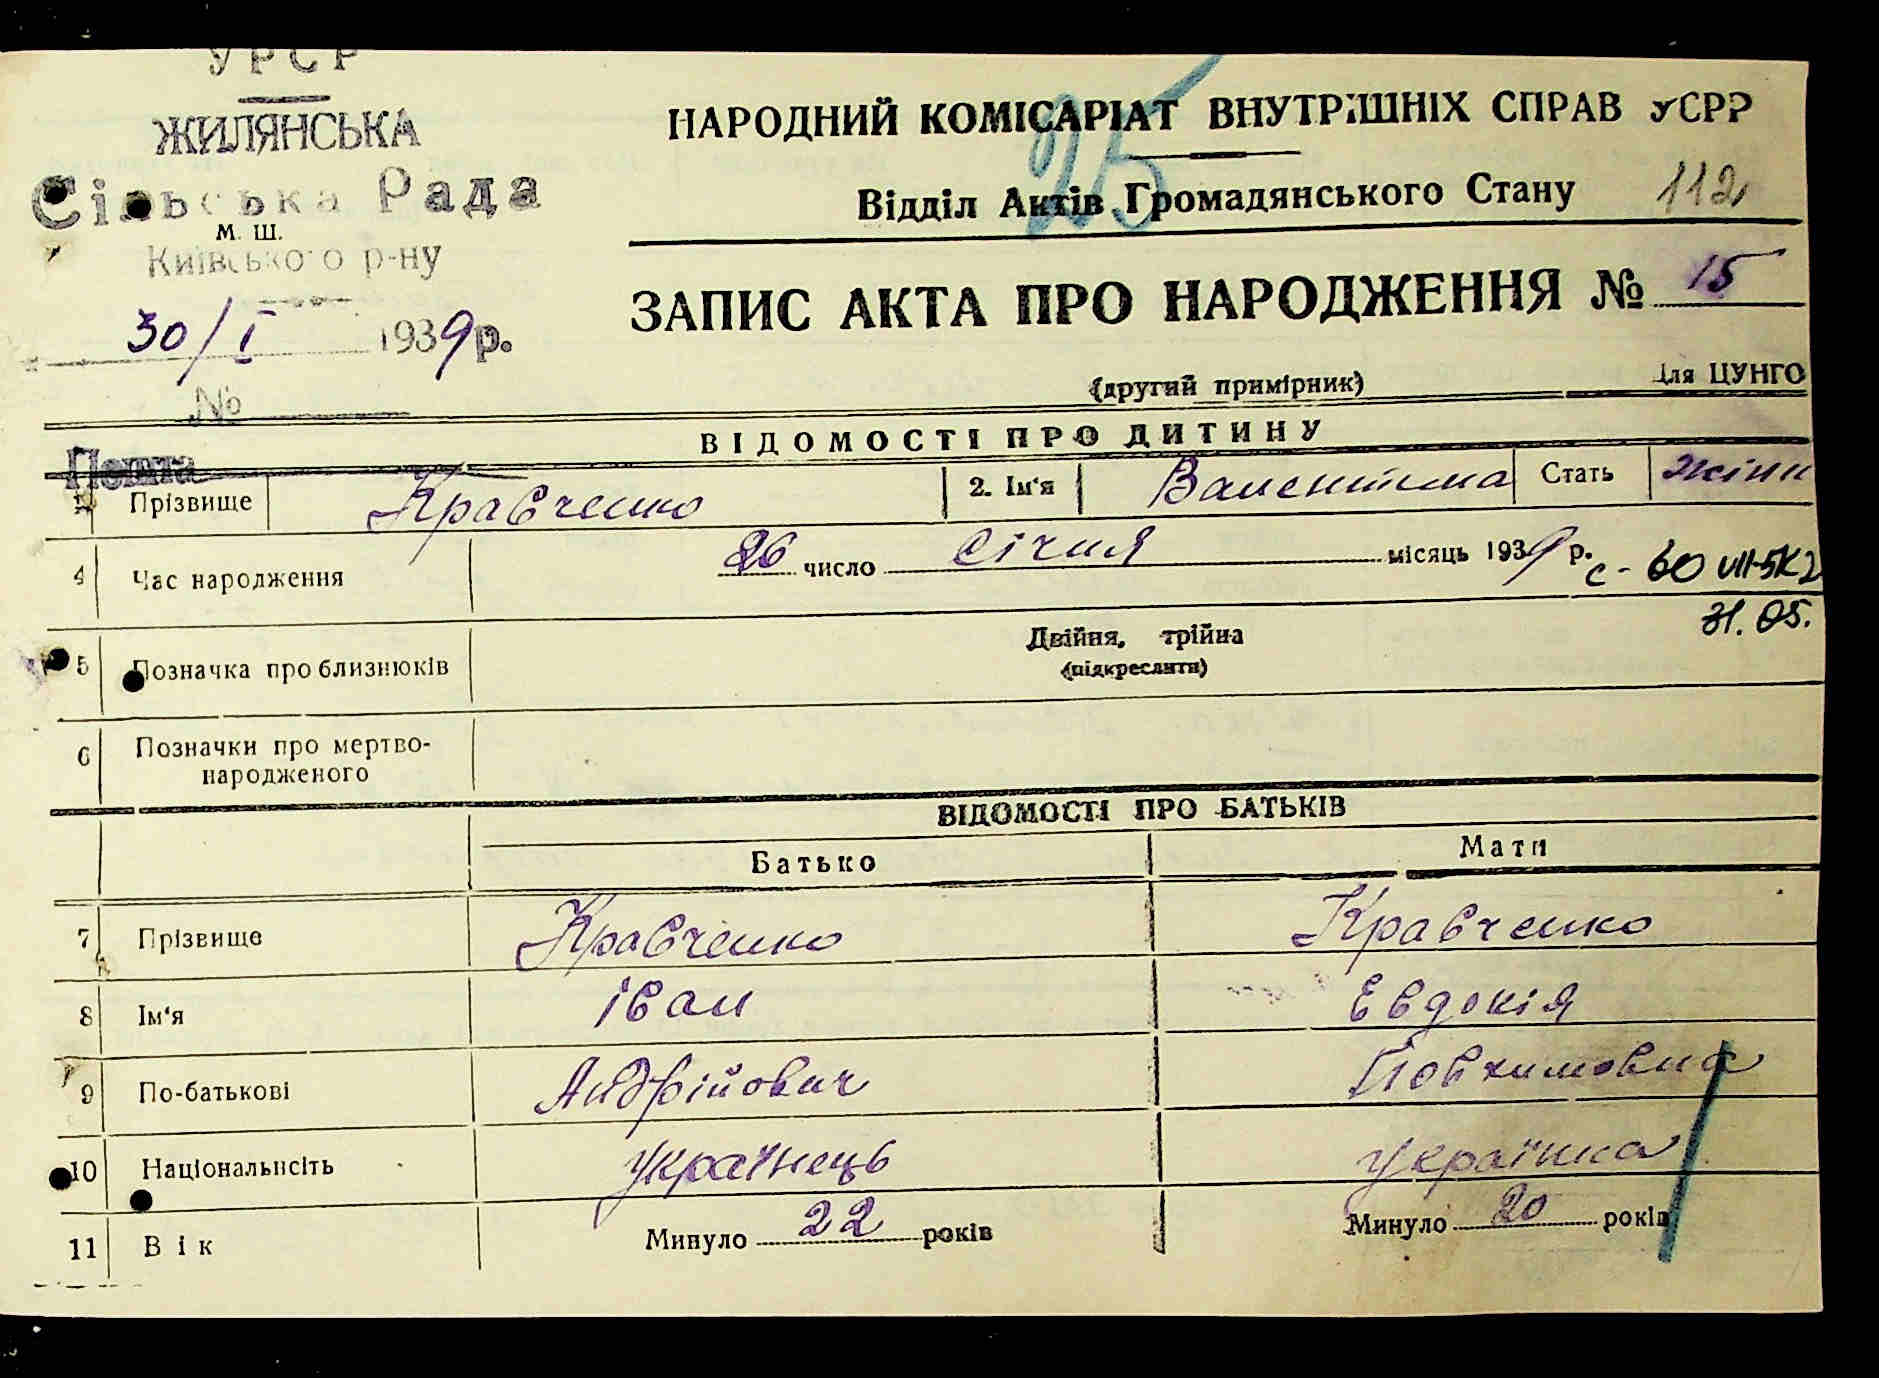 УРСР
ЖИЛЯНСЬКА
Сільська Рада
м. ш.
Київського р-ну
30/I 1939 р.
№
Пошта
25
НАРОДНИЙ КОМІСАРІАТ ВНУТРІШНІХ СПРАВ УСРР
Відділ Актів Громадянського Стану 112
ЗАПИС АКТА ПРО НАРОДЖЕННЯ № 15
(другий примірник) Для ЦУНГО
ВІДОМОСТІ ПРО ДИТИНУ
1 Прізвище Кравченко 2. Ім'я Валентина Стать жіни
4 Час народження 26 число Січня місяць 1939 р.
с - 60 VII-БК 2
31.05.
5 Позначка про близнюків Двійня, трійна
(підкреслити)
6 Позначки про мертво-
народженого
ВІДОМОСТІ ПРО БАТЬКІВ
Батько Мати
7 Прізвище Кравченко Кравченко
8 Ім'я Іван Евдокія
9 По-батькові Андрійович Йовхимовна
10 Національність українець українка
11 Вік Минуло 22 років Минуло 20 років